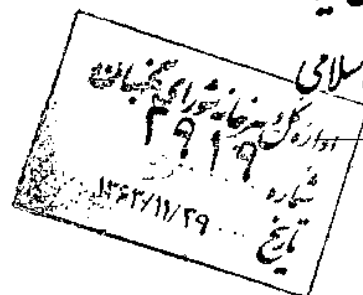 سلامی
اداره کل دبیرخانه شورای نگهبان
۲۹۱۹
شماره
تاریخ ۱۳۶۳/۱۱/۲۹